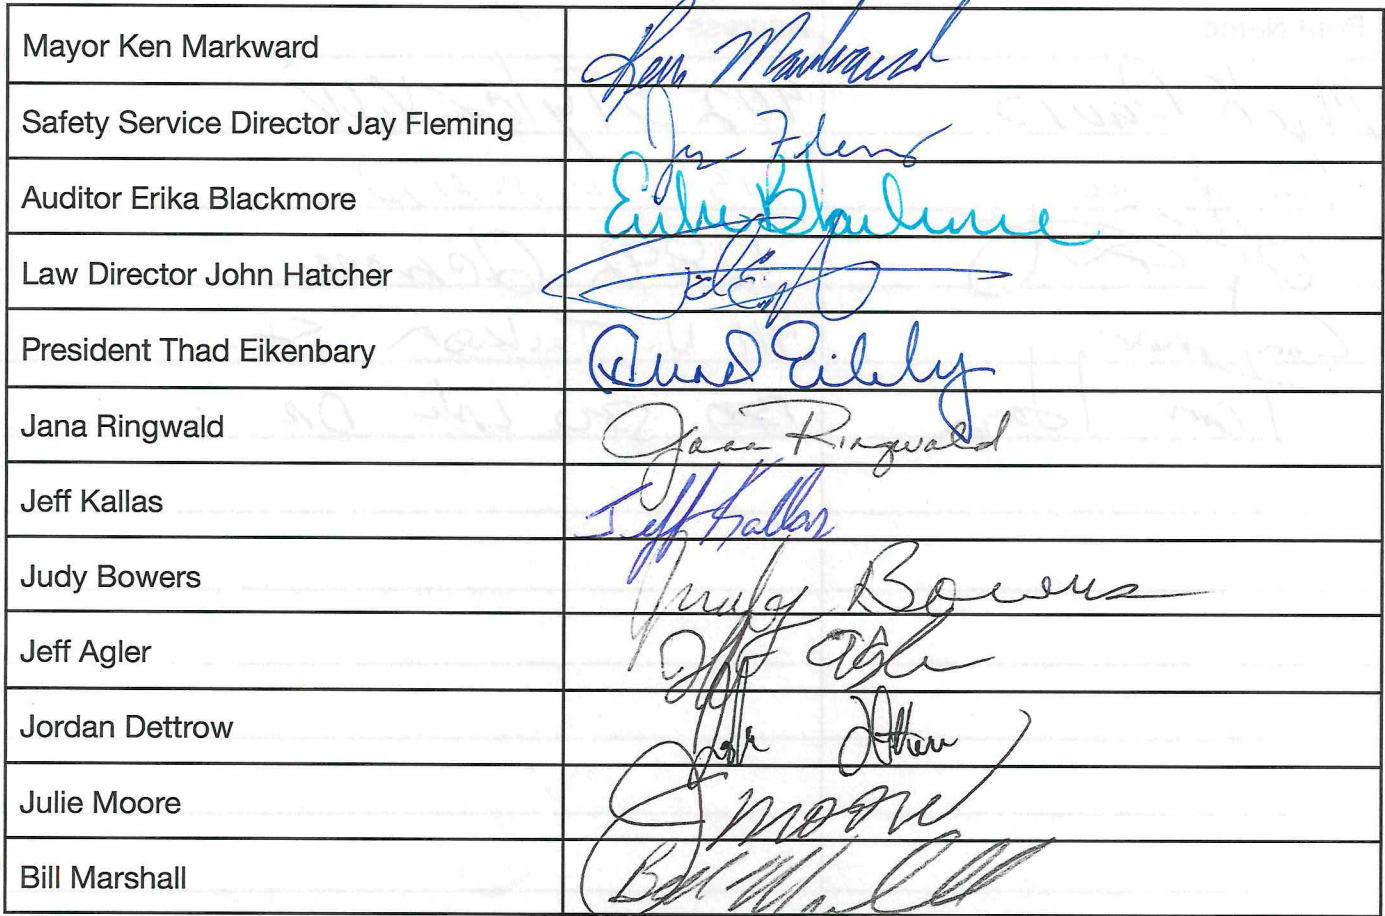 Mayor Ken Markward Ken Markward
Safety Service Director Jay Fleming Jay Fleming
Auditor Erika Blackmore
Law Director John Hatcher
President Thad Eikenbary
Jana Ringwald Jana Ringwald
Jeff Kallas Jeff Kallas
Judy Bowers Judy Bowers
Jeff Agler Jeff Agler
Jordan Dettrow
Julie Moore J Moore
Bill Marshall Bill Marshall